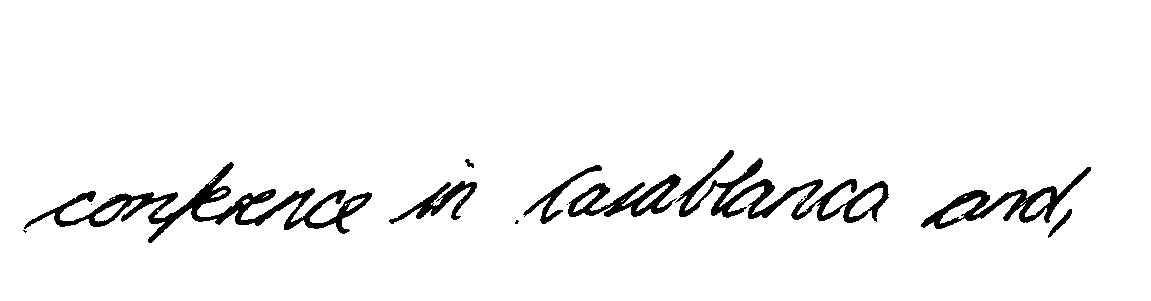 conference in Casablanca and,